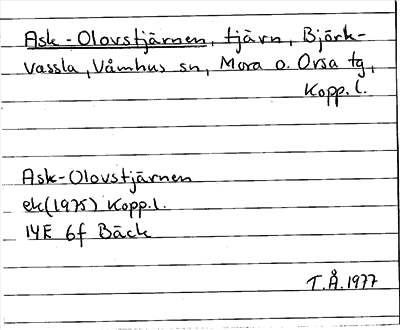 Ask-Olovstjärnen, tjärn, Björk-
vassla, Våmhus sn, Mora o. Orsa tg,
Kopp. l.
Ask-Olovstjärnen
ek(1975) Kopp.l.
14E 6f Bäck
T.Å.1977